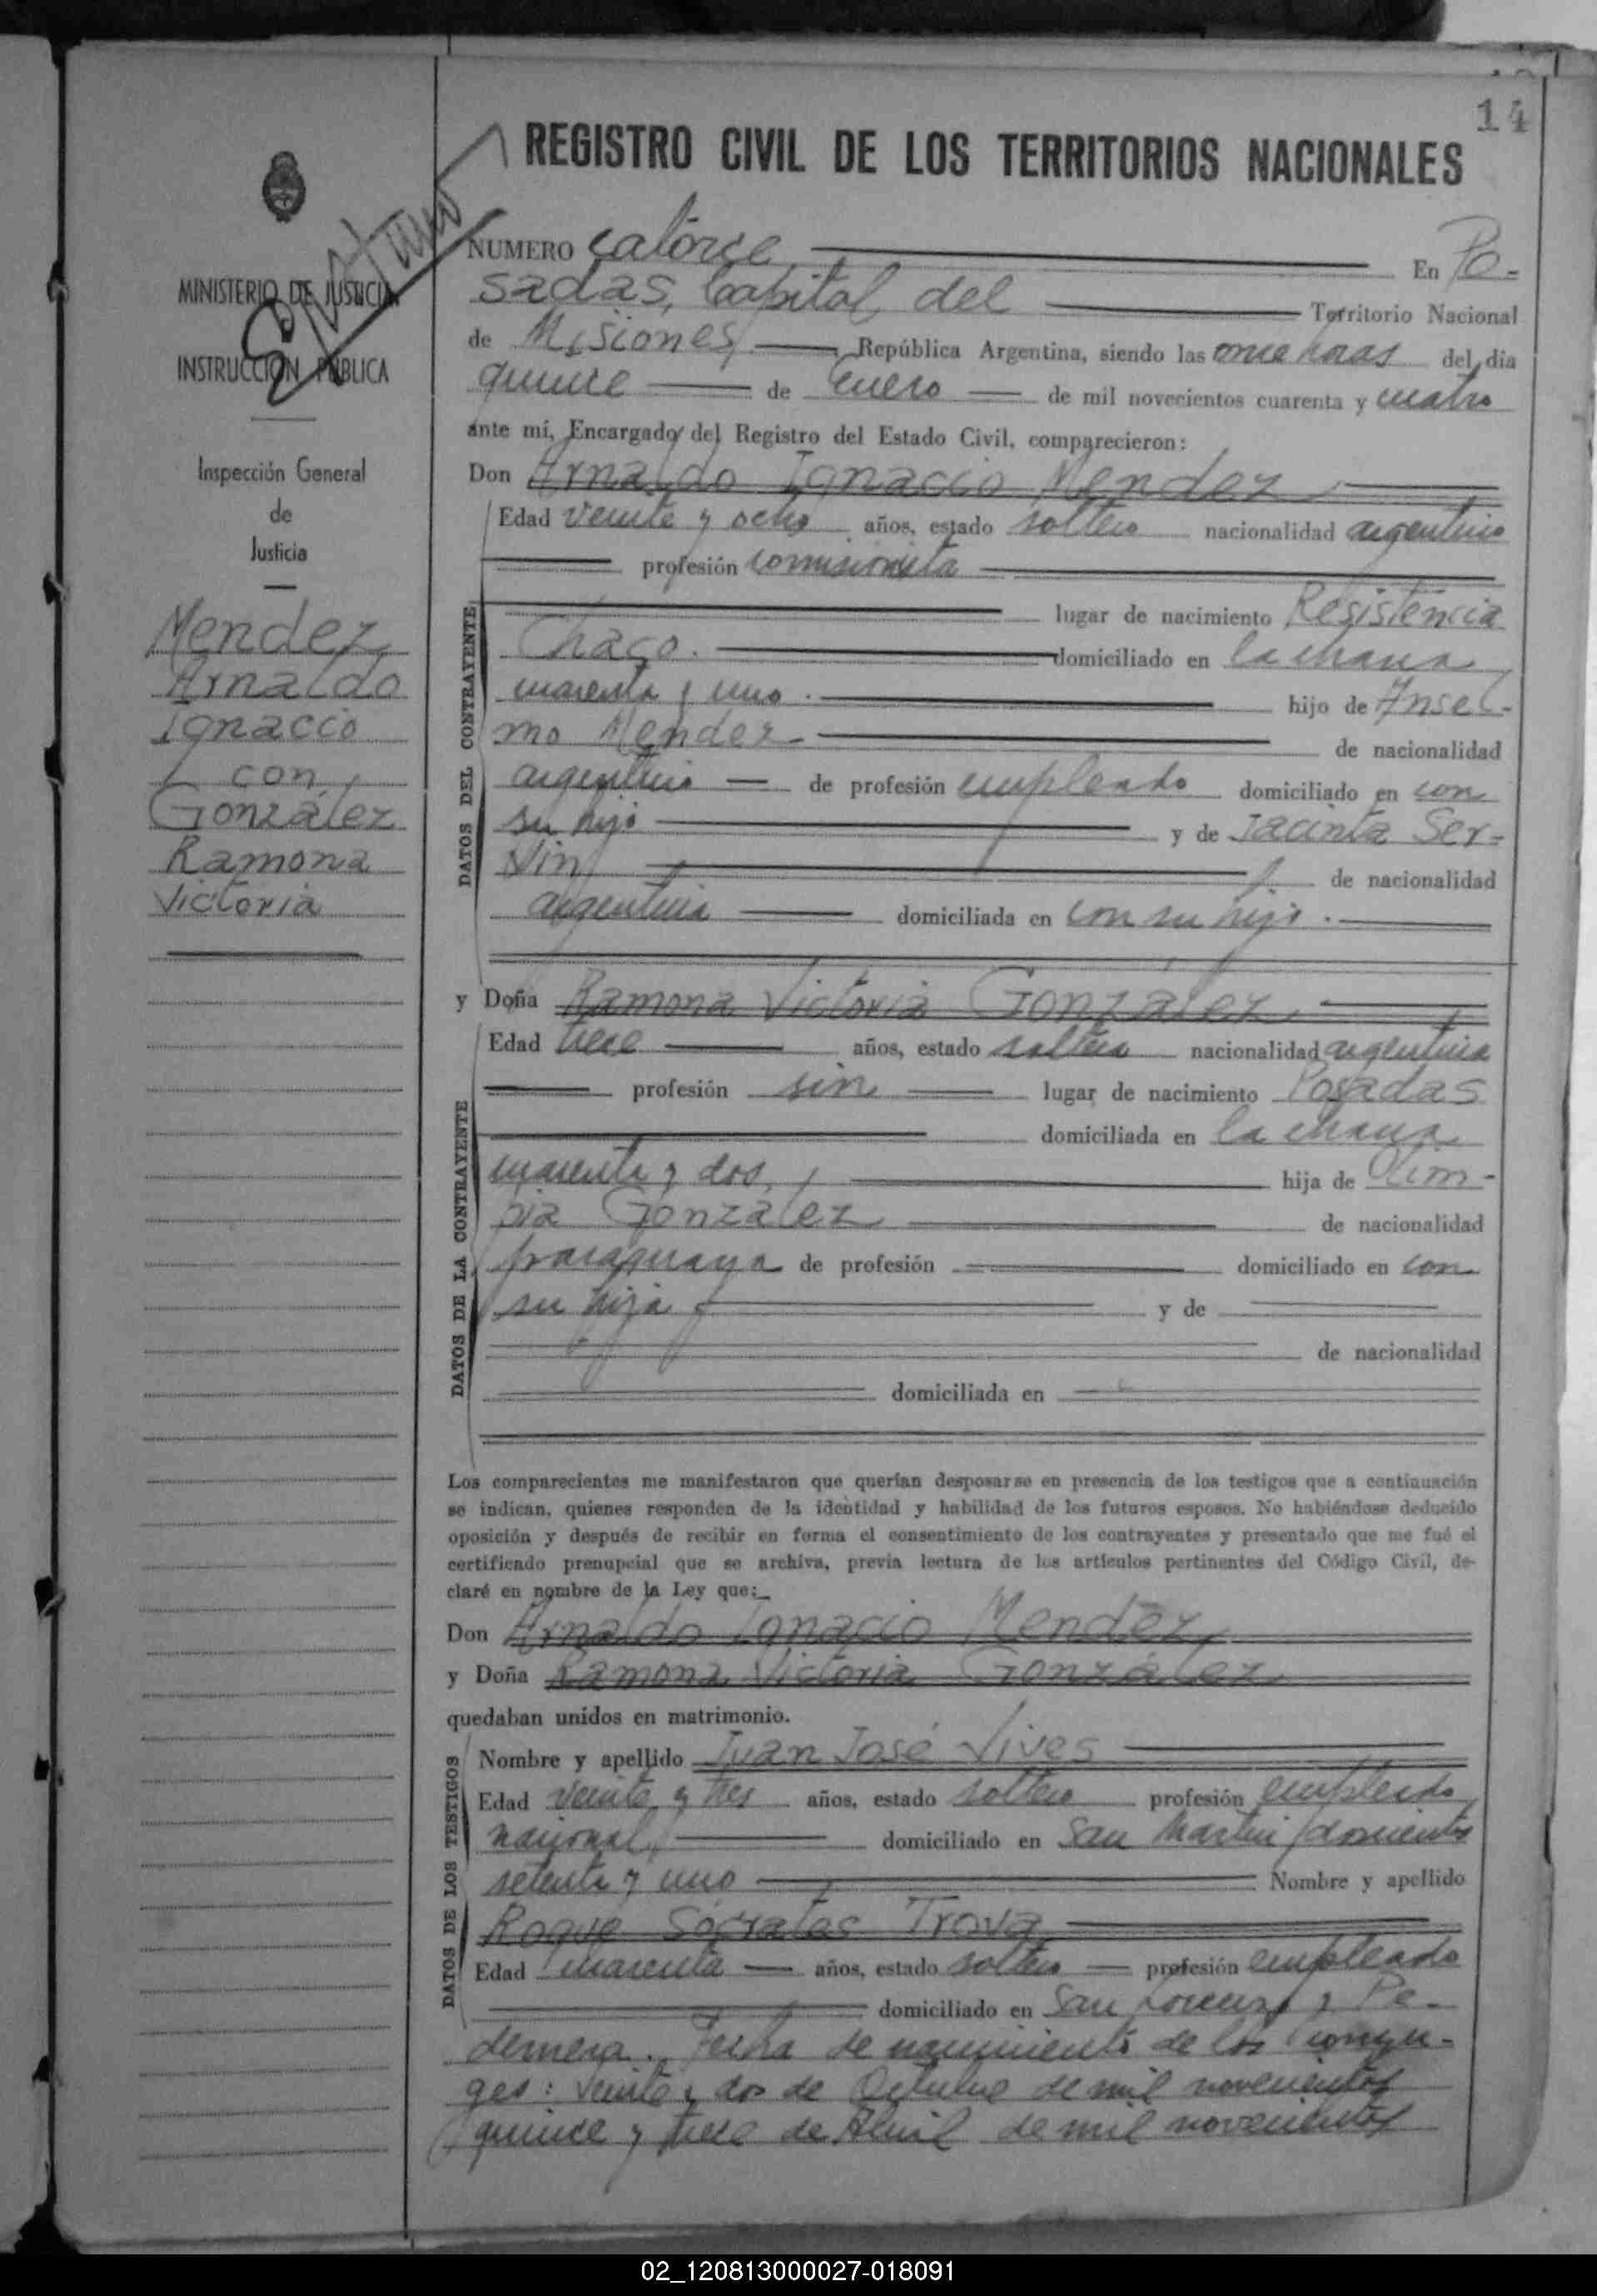 14
REGISTRO CIVIL DE LOS TERRITORIOS NACIONALES
MINISTERIO DE JUSTICIA
INSTRUCCION PUBLICA
Inspección General
de
Justicia
Mendez
Arnaldo
Ignacio
con
González
Ramona
Victoria
NUMERO catorce En Po-
sadas, Capital del Territorio Nacional
de Misiones República Argentina, siendo las once horas del día
quince de Enero de mil novecientos cuarenta y cuatro
ante mí, Encargado del Registro del Estado Civil, comparecieron:
Don Arnaldo Ignacio Mendez
Edad veinte y ocho años, estado soltero nacionalidad argentino
profesión comisionista
DATOS DEL CONTRAYENTE
lugar de nacimiento Resistencia
Chaco. domiciliado en la chacra
cuarenta y uno. hijo de Ansel-
mo Mendez de nacionalidad
argentino de profesión empleado domiciliado en con
su hijo y de Jacinta Ser-
vin de nacionalidad
argentina domiciliada en con su hijo.
y Doña Ramona Victoria González
Edad trece años, estado soltera nacionalidad argentina
profesión sin lugar de nacimiento Posadas
DATOS DE LA CONTRAYENTE
domiciliada en la chacra
cuarenta y dos, hija de Olim-
pia González de nacionalidad
paraguaya de profesión domiciliado en con
su hija y de
de nacionalidad
domiciliada en
Los comparecientes me manifestaron que querían desposarse en presencia de los testigos que a continuación
se indican, quienes responden de la identidad y habilidad de los futuros esposos. No habiéndose deducido
oposición y después de recibir en forma el consentimiento de los contrayentes y presentado que me fué el
certificado prenupcial que se archiva, previa lectura de los artículos pertinentes del Código Civil, de-
claré en nombre de la Ley que:
Don Arnaldo Ignacio Mendez
y Doña Ramona Victoria González
quedaban unidos en matrimonio.
DATOS DE LOS TESTIGOS
Nombre y apellido Juan José Vives
Edad veinte y tres años, estado soltero profesión empleado
nacional, domiciliado en San Martin doscientos
setenta y uno Nombre y apellido
Roque Sócratas Trova
Edad cuarenta años, estado soltero profesión empleado
domiciliado en San Lorenzo y Pe-
dernera. Fecha de nacimiento de los conyu-
ges: veinte y dos de Octubre de mil novecientos
quince y trece de Abril de mil novecientos
02_120813000027-018091